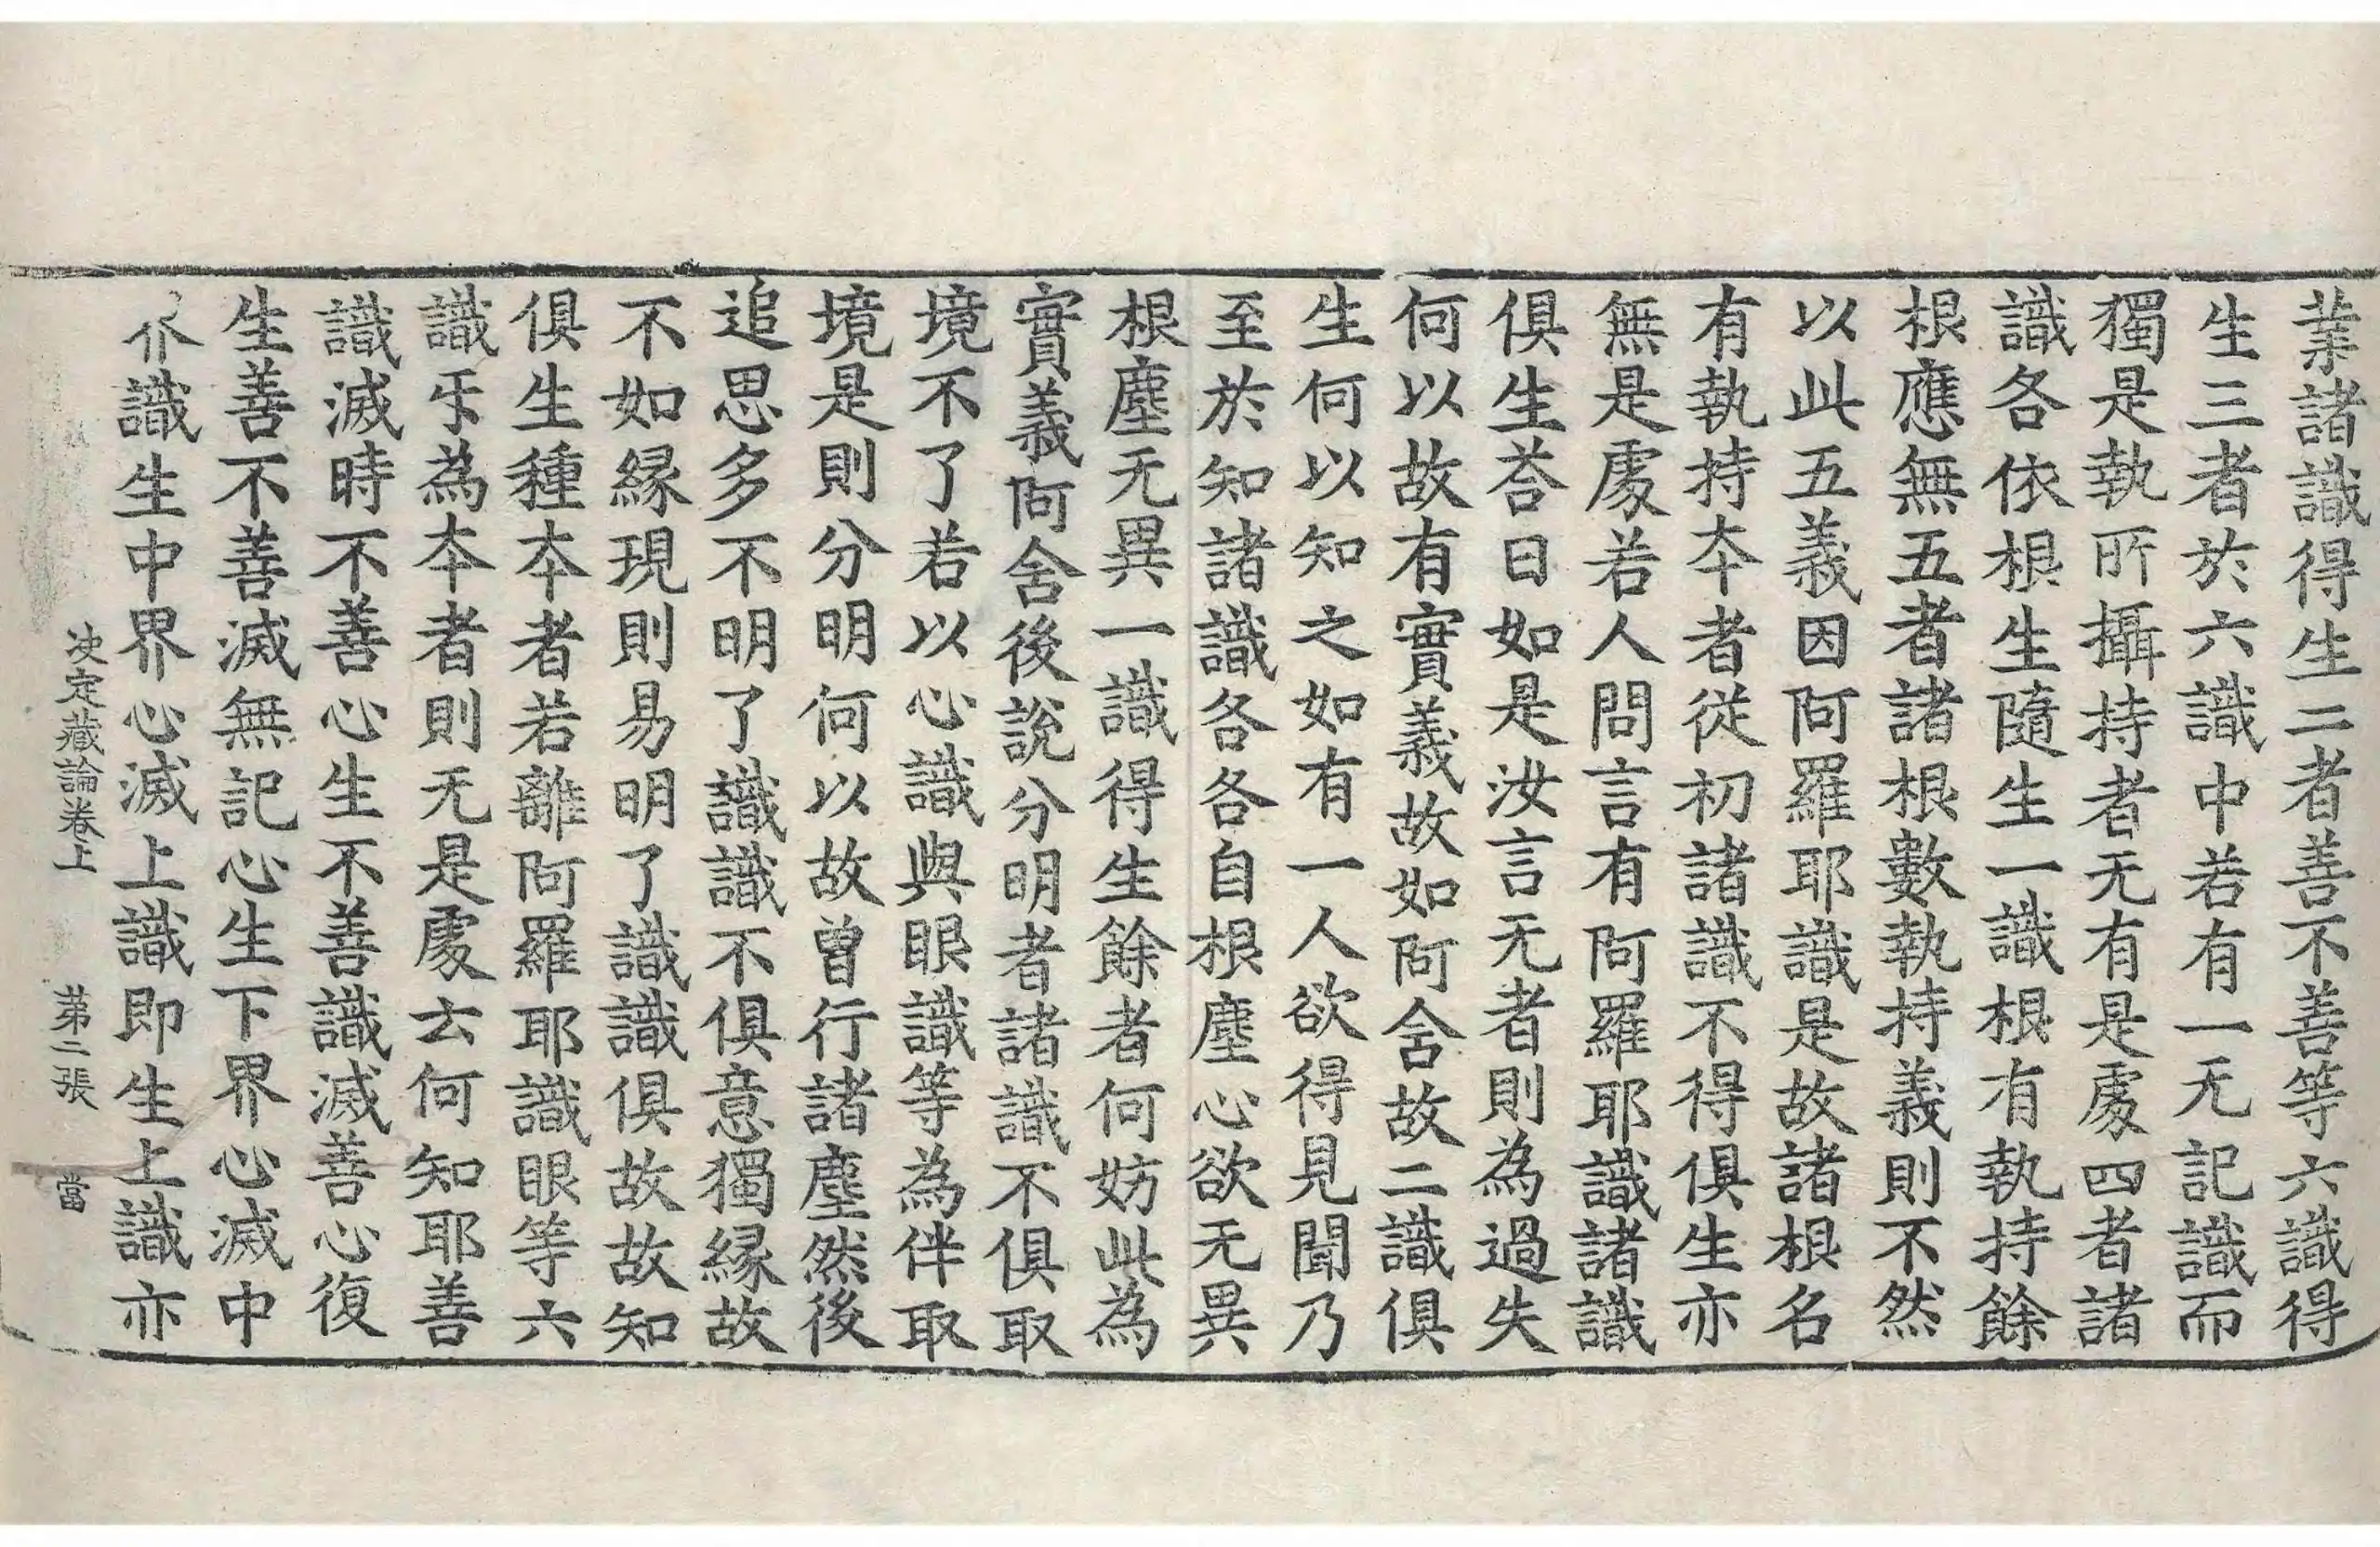 業諸識得生二者善不善等六識得
生三者於六識中若有一无記識而
獨是執所攝持者无有是處四者諸
識各依根生隨生一識根有執持餘
根應無五者諸根數執持義則不然
以此五義因阿羅耶識是故諸根名
有執持夲者從初諸識不得俱生亦
無是處若人問言有阿羅耶識諸識
俱生荅曰如是汝言无者則為過失
何以故有實義故如阿含故二識俱
生何以知之如有一人欲得見聞乃
至於知諸識各各自根塵心欲无異
根塵无異一識得生餘者何妨此為
實義阿含後說分明者諸識不俱取
境不了若以心識與眼識等為伴取
境是則分明何以故曾行諸塵然後
追思多不明了識識不俱意獨緣故
不如緣現則易明了識識俱故故知
俱生種夲者若離阿羅耶識眼等六
識㸦為夲者則无是處云何知耶善
識滅時不善心生不善識滅善心復
生善不善滅無記心生下界心滅中
識生中界心滅上識即生上識亦
决定藏論卷上 第二張 當